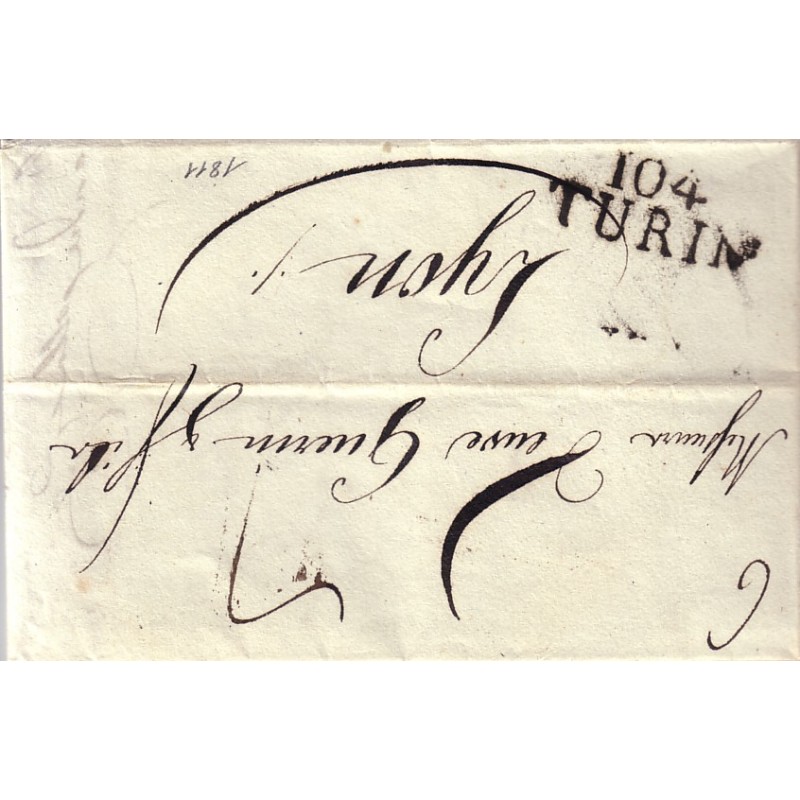 104
TURIN
Messieurs Veuve Guerin & fils
Lyon
1811